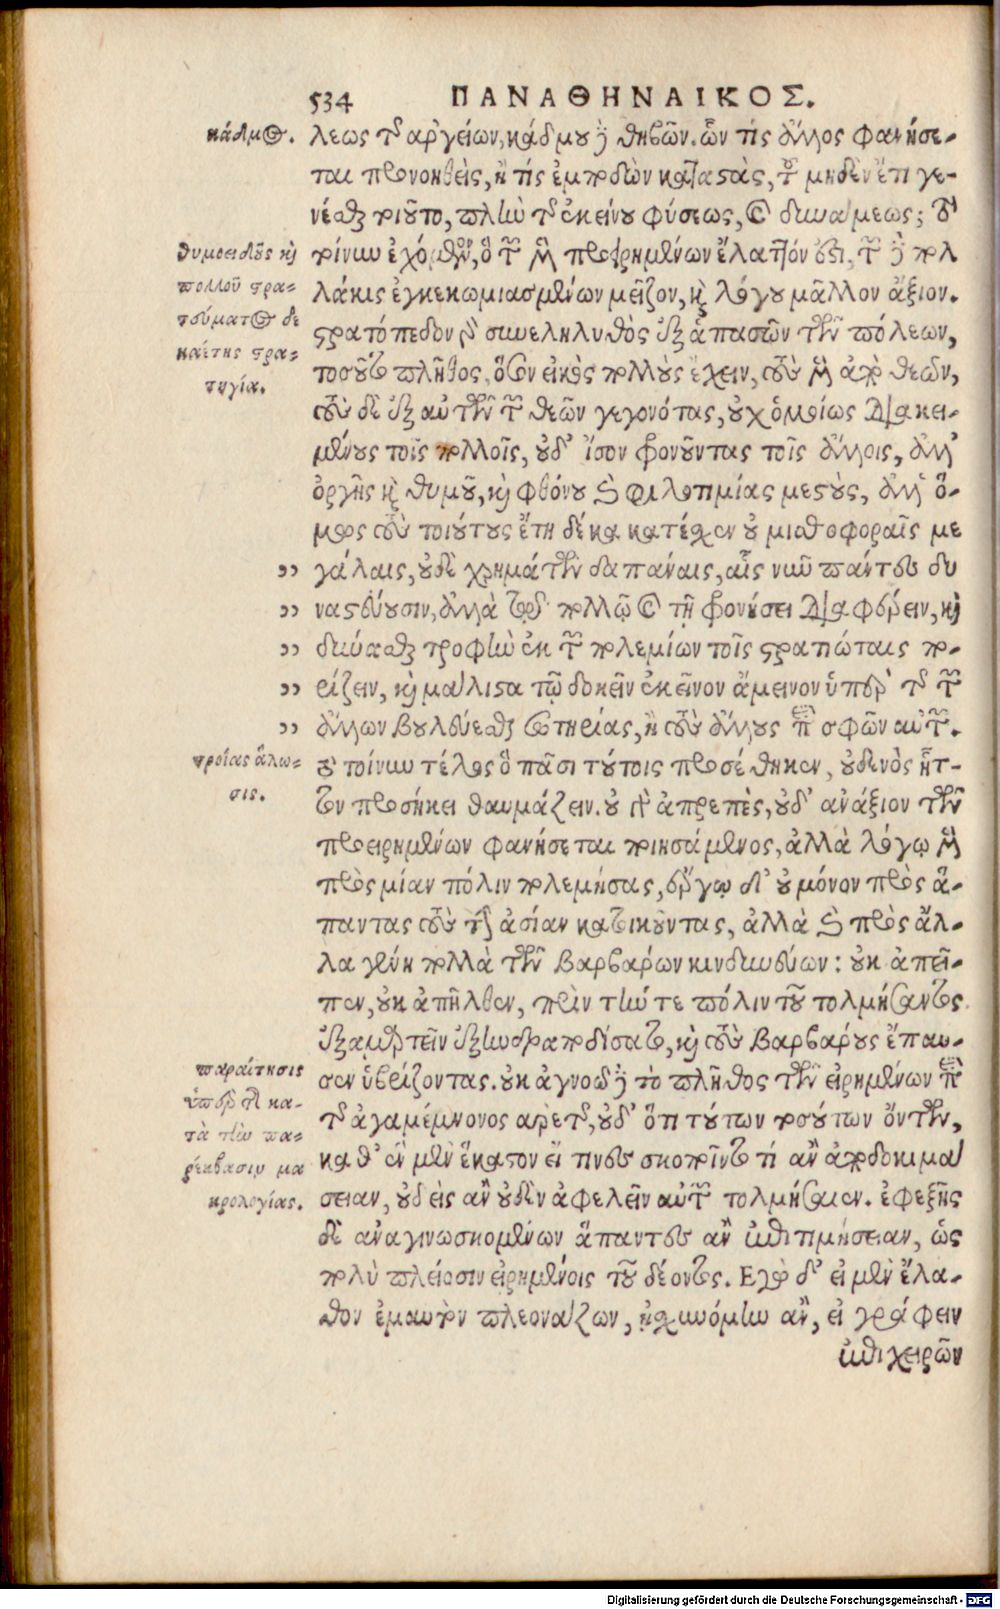 534 ΠΑΝΑΘΗΝΑΙΚΟΣ.
κάδμος. λεως τῆς ἀργείων, κάδμου δὲ θηβῶν. ὧν τίς ἄλλος φανήσε-
ται προνοηθεὶς, ἢ τίς ἐμποδὼν καταστὰς, τοῦ μηδὲν ἔτι γε-
νέσθαι τοιοῦτο, πλὴν τῆς ἐκείνου φύσεως, καὶ δυνάμεως; τὸ
θυμοειδοῦς καὶ τοίνυν ἐχόμενον, ὃ τῶν μὲν προειρημένων ἔλαττόν ἐστι, τῶν δὲ πολ
πολλοῦ στρα- λάκις ἐγκεκωμιασμένων μεῖζον, καὶ λόγου μᾶλλον ἄξιον.
τεύματος δε στρατόπεδον γὰρ συνεληλυθὸς ἐξ ἁπασῶν τῶν πόλεων,
καίτης στρα- τοσοῦτο πλῆθος, ὅσον εἰκὸς πολλοὺς ἔχειν, τοὺς μὲν ἀπὸ θεῶν,
τηγία. τοὺς δὲ ἐξ αὐτῶν τῶν θεῶν γεγονότας, οὐχ ὁμοίως διακει-
μένους τοῖς πολλοῖς, οὐδ' ἴσον φρονοῦντας τοῖς ἄλλοις, ἀλλ'
ὀργῆς καὶ θυμοῦ, καὶ φθόνου καὶ φιλοτιμίας μεστοὺς, ἀλλ' ὅ-
μως τοὺς τοιούτους ἔτη δέκα κατέσχεν οὐ μισθοφοραῖς με
,, γάλαις, οὐδὲ χρημάτων δαπάναις, αἷς νῦν πάντες δυ
,, ναστεύουσιν, ἀλλὰ τῷ πολλῷ καὶ τῇ φρονήσει διαφέρειν, καὶ
,, δύνασθαι τροφὴν ἐκ τῶν πολεμίων τοῖς στρατιώταις πο-
,, ρίζειν, καὶ μάλιστα τῷ δοκεῖν ἐκεῖνον ἄμεινον ὑπὲρ τῆς τῶν
,, ἄλλων βουλεύεσθαι σωτηρίας, ἢ τοὺς ἄλλους περὶ σφῶν αὐτῶν.
τροίας ἅλω- τὸ τοίνυν τέλος ὃ πᾶσι τούτοις προσέθηκεν, οὐδενὸς ἧτ-
σις. τον προσήκει θαυμάζειν. οὐ γὰρ ἀπρεπὲς, οὐδ' ἀνάξιον τῶν
προειρημένων φανήσεται ποιησάμενος, ἀλλὰ λόγῳ μὲν
πρὸς μίαν πόλιν πολεμήσας, ἔργῳ δ' οὐ μόνον πρὸς ἅ-
παντας τοὺς τὴν ἀσίαν κατοικοῦντας, ἀλλὰ καὶ πρὸς ἄλ-
λα γένη πολλὰ τῶν βαρβάρων κινδυνεύων: οὐκ ἀπεῖ-
πεν, οὐκ ἀπῆλθεν, πρὶν τήν τε πόλιν τοῦ τολμήσαντος
ἐξαμαρτεῖν ἐξηνδραποδίσατο, καὶ τοὺς βαρβάρους ἔπαυ-
παραίτησις σεν ὑβρίζοντας. οὐκ ἀγνοῶ δὲ τὸ πλῆθος τῶν εἰρημένων περὶ
ὑπὲρ τῆς κα- τῆς ἀγαμέμνονος ἀρετῆς, οὐδ' ὅτι τούτων τοσούτων ὄντων,
τὰ τὴν πα- καθ' ἓν μὲν ἕκαστον εἴ τινες σκοποῖντο τί ἂν ἀποδοκιμά
ρέκβασιν μα σειαν, οὐδεὶς ἂν οὐδὲν ἀφελεῖν αὐτῶν τολμήσειεν. ἐφεξῆς
κρολογίας. δὲ ἀναγινωσκομένων ἅπαντες ἂν ἐπιτιμήσειαν, ὡς
πολὺ πλείοσιν εἰρημένοις τοῦ δέοντος. Ἐγὼ δ' εἰ μὲν ἔλα-
θον ἐμαυτὸν πλεονάζων, ᾐσχυνόμην ἂν, εἰ γράφειν
ἐπιχειρῶν
Digitalisierung gefördert durch die Deutsche Forschungsgemeinschaft - DFG